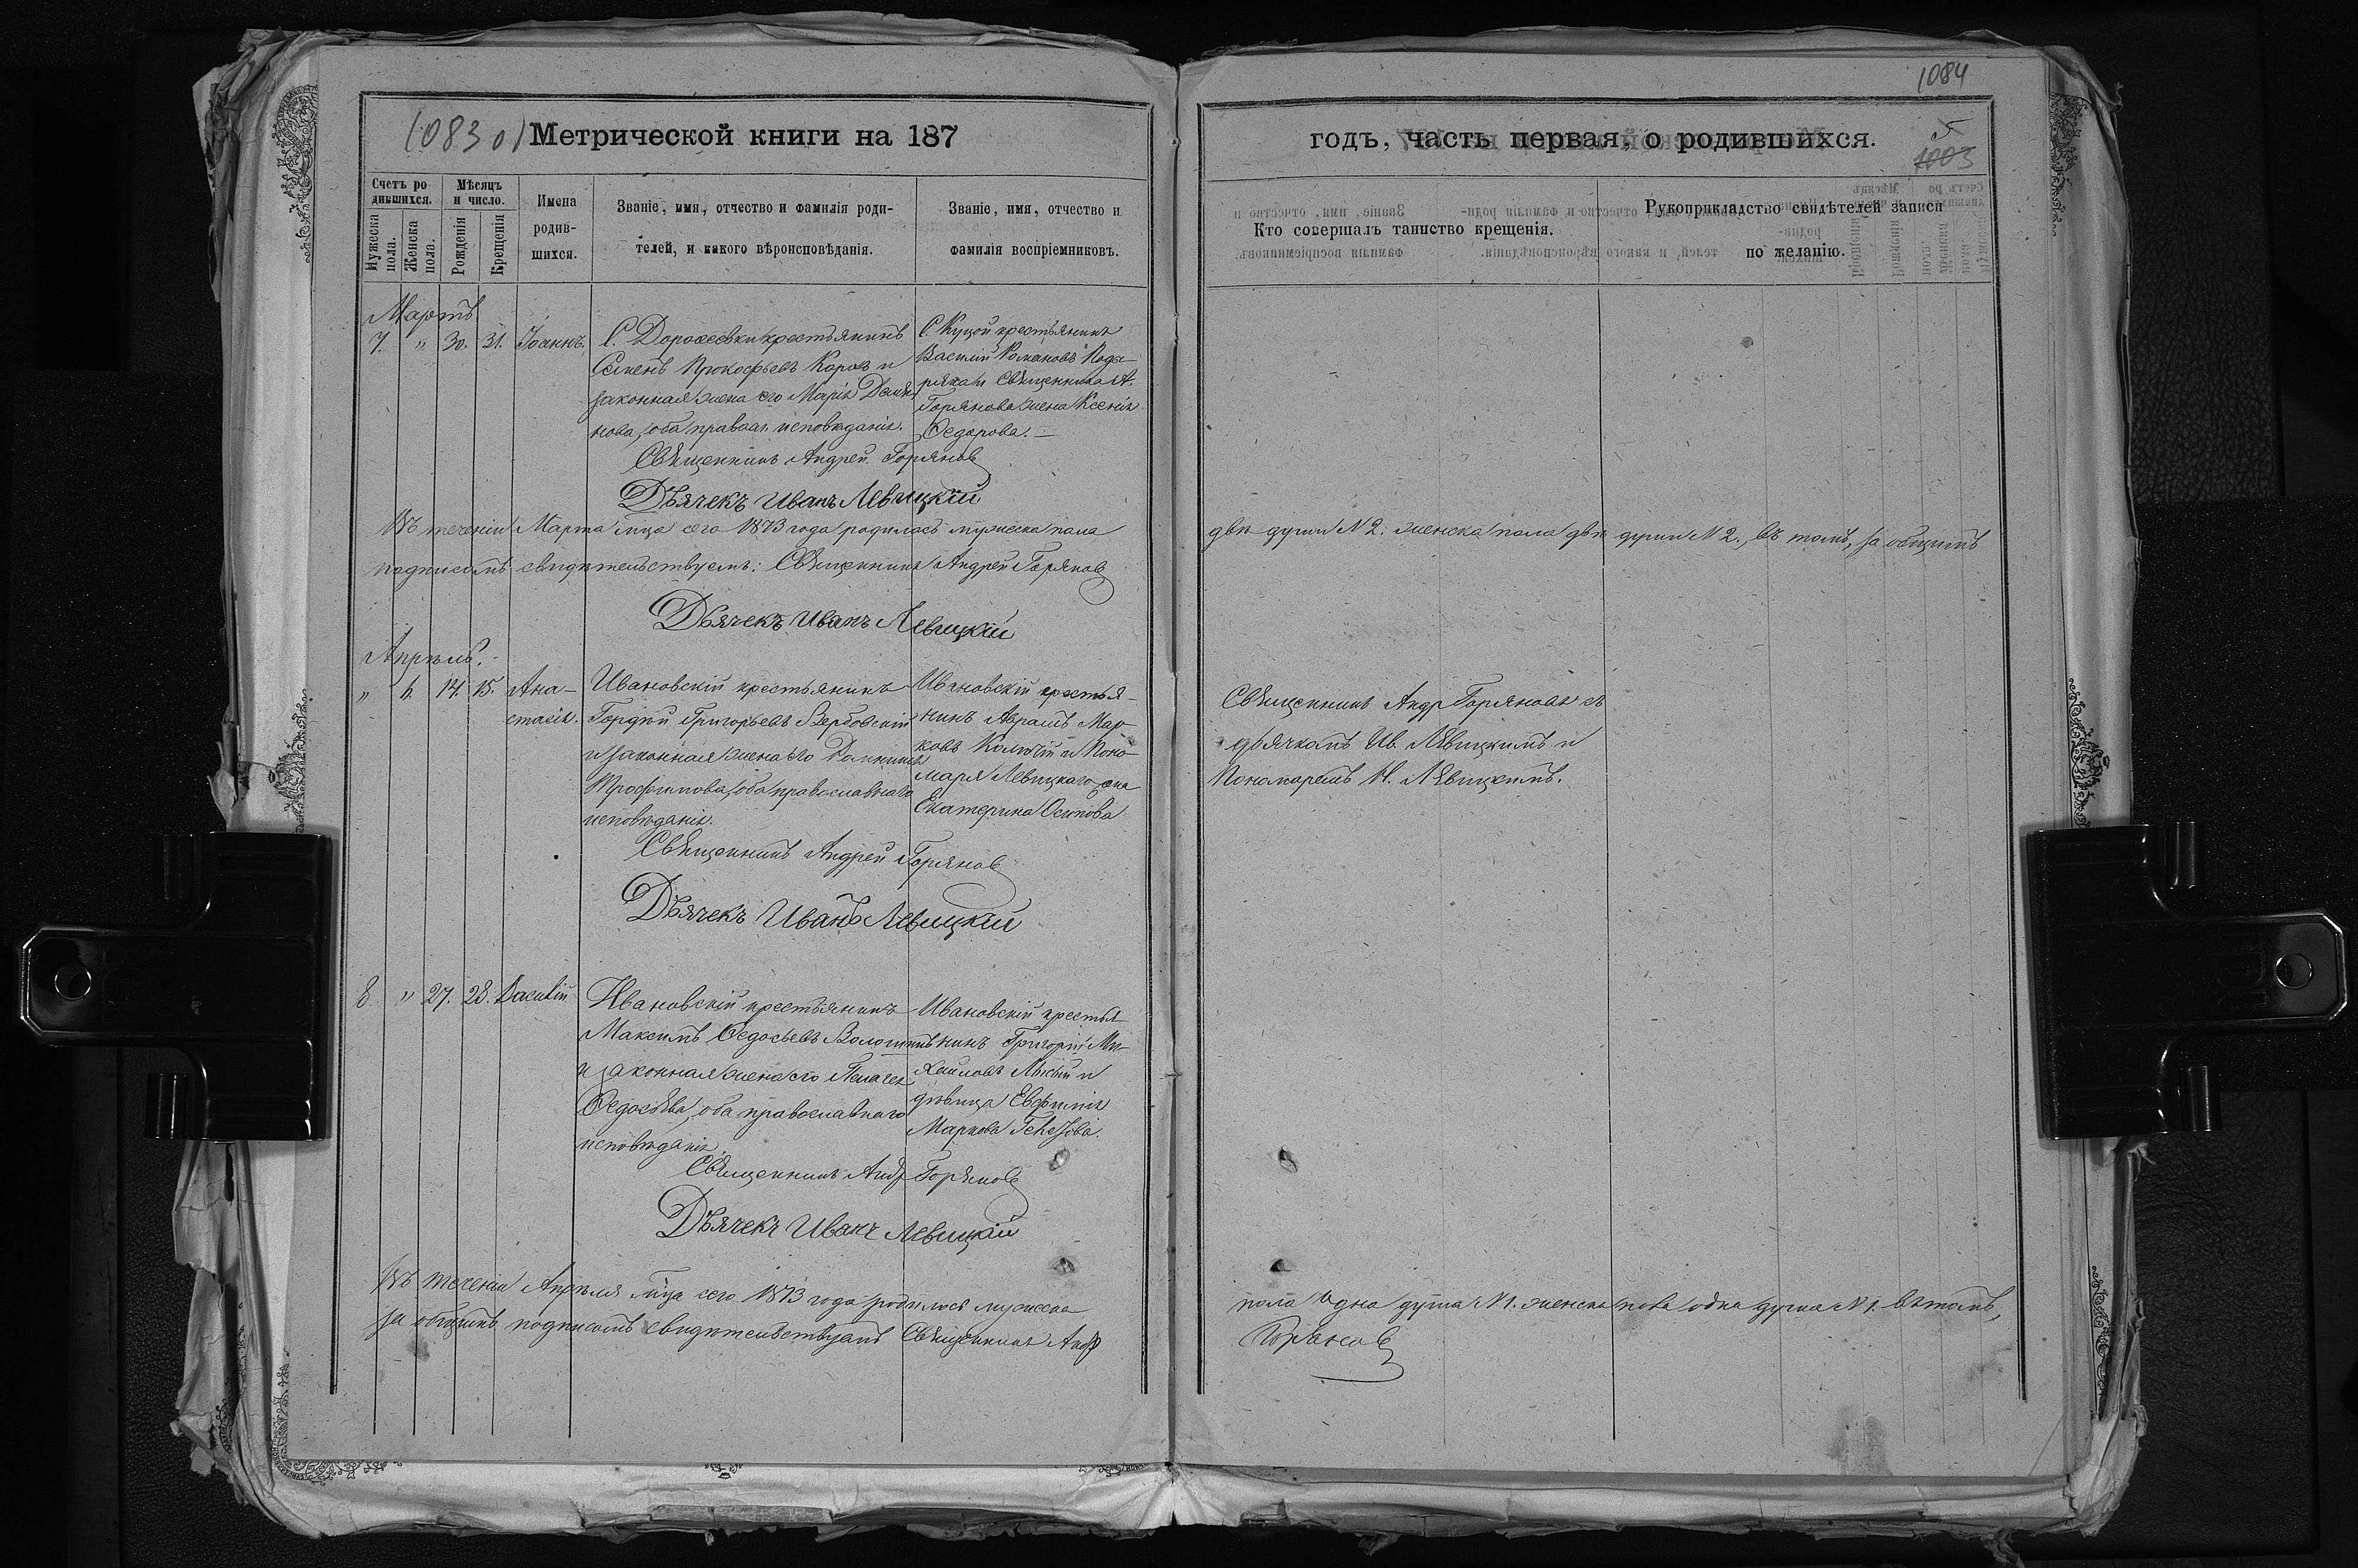 1084
1083 об
Метрической книги на 187
годъ, часть первая, о родившихся.
5
1003
Счетъ ро
дившихся.
Мѣсяцъ
и число.
Мужеска
пола.
Женска
пола.
Рожденія
Крещенія
Имена
родив-
шихся.
Званіе, имя, отчество и фамилія роди-
телей, и какого вѣроисповѣданія.
Званіе, имя, отчество и
фамилія воспріемниковъ.
Кто совершалъ таинство крещенія.
Рукоприкладство свидѣтелей записи
по желанію.
Мартъ
7. " 30. 31. Іоаннъ.
С. Дорожевки крестьянинъ
Семенъ Прокофьевъ Коровъ и
законная жена его Марія Демья
нова, оба правосл. исповѣданія.
С. Куцой крестьянинъ
Василій Романовъ
и Священника А.
Горянова жена Ксенія
Ѳедорова.
Священникъ Андрей Горяновъ
Дьячекъ Иванъ Левицкій
Въ теченіи Марта м-ца сего 1873 года родилось мужеска пола
двѣ души № 2. женска пола двѣ души № 2., въ томъ, за общимъ
подписомъ свидѣтельствуемъ: Священникъ Андрей Горяновъ
Дьячекъ Иванъ Левицкій
Апрѣль.
" 6. 14. 15. Ана-
стасія.
Ивановскій крестьянинъ
Гордѣй Григорьевъ Вербовскій
и законная жена его Домникія
Трофимова, оба православнаго
исповѣданія.
Ивановскій крестья-
нинъ Аврамъ Мар-
ковъ и Поно-
маря Левицкаго жена
Екатерина Осипова
Священникъ Андр. Горяновъ съ
дьячкомъ Ив. Левицкимъ и
Пономаремъ Н. Левицкимъ.
Священникъ Андрей Горяновъ
Дьячекъ Иванъ Левицкій
8 " 27. 28. Василій
Ивановскій крестьянинъ
Максимъ Ѳедосьевъ Волошинъ
и законная жена его Пелагея
Ѳедосьева, оба православнаго
исповѣданія.
Ивановскій крестья
нинъ Григорій Ми-
хайловъ Лысый и
дѣвица Евфимія
Маркова
Священникъ Андр Горяновъ
Дьячекъ Иванъ Левицкій
Въ теченіи Апрѣля м-ца сего 1873 года родилось мужеска
пола одна душа № 1. женска пола одна душа № 1. въ томъ,
за общимъ подписомъ свидѣтельствуемъ Священникъ Андр
Горяновъ